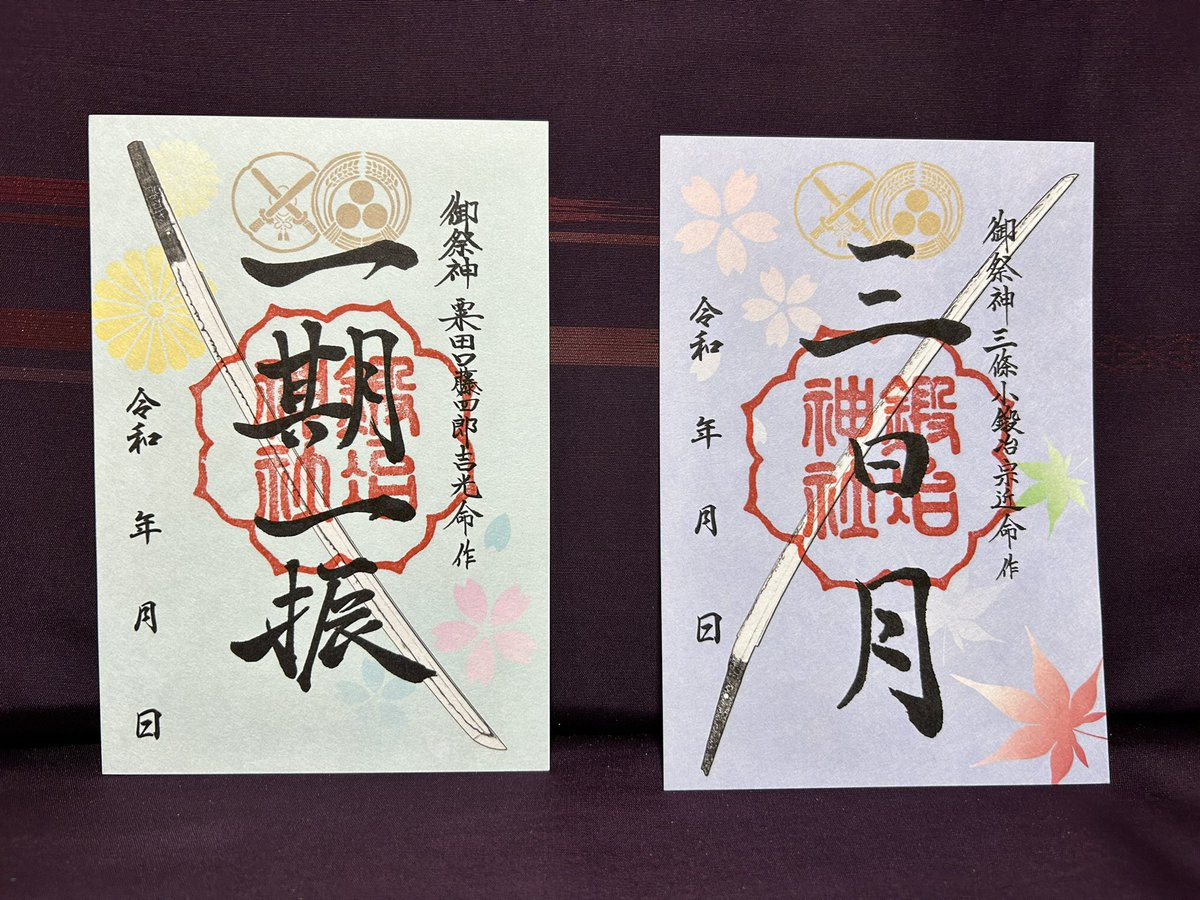 御祭神 粟田口藤四郎吉光命作
一期一振
鍛冶神社
令和 年 月 日
御祭神 三條小鍛冶宗近命作
三日月
鍛冶神社
令和 年 月 日